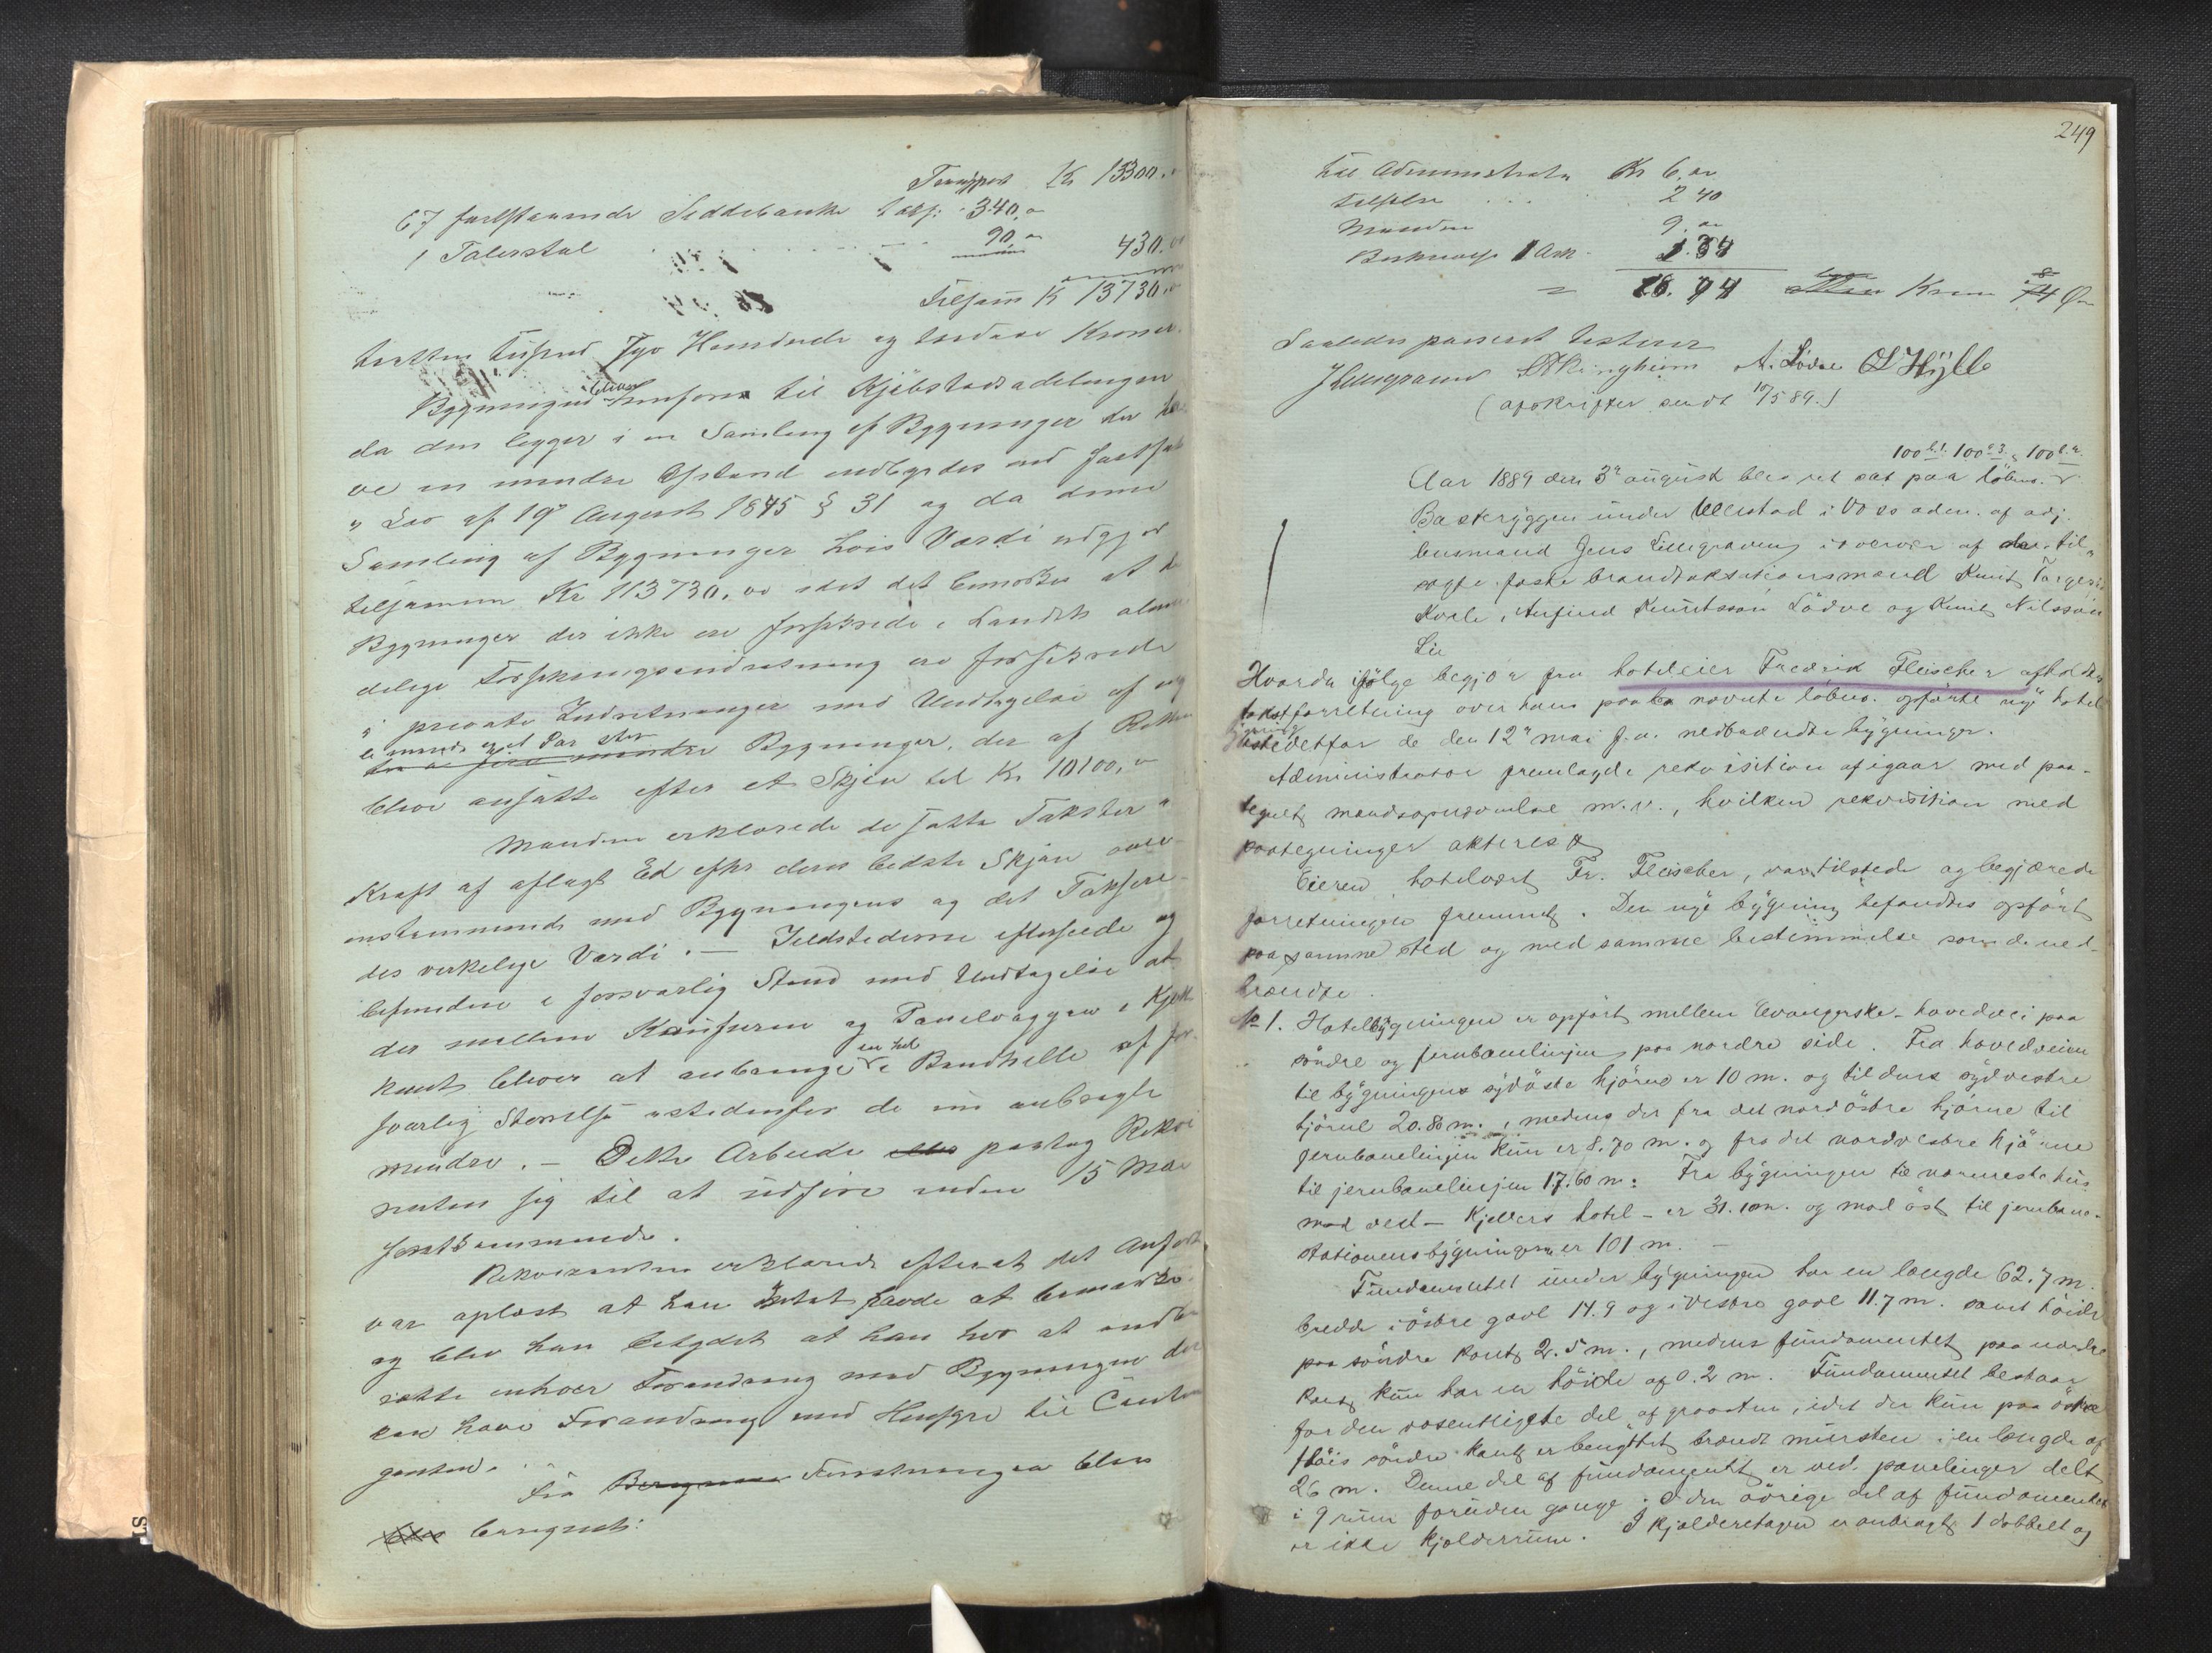 Transport Kr 13300.
67 faststaaende Siddebænke taks: " 340,"
1 Talerstol 90," 430.00
Tilsam K 13730,00
tretten tusend syv Hundrede og tredive Kroner.
Bygningen bliver til Kjøbstadsadelingen
da den ligger i en Samling af Bygninger der
ve en mindre Afstand indbyrdes end fastsat
i Lov af 19de August 1845 § 31 og da denne
Samling af Bygninger hvis Værdi udgjør
tilsammen Kr 113730,00 idet det bemærkes at de
Bygninger der ikke ere forsikrede i Landets almin
delige Forsikringsindretning ere forsikrede
i private Indretninger med Undtagelse af
et Par
mindre Bygninger, der af Retten
bleve ansatte efter et Skjøn til Kr 10100,00
Mændene erklærede de satte Takster i
Kraft af aflagt Ed efter deres bedste Skjøn over-
ensstemmende med Bygningens og det Taksere-
des virkelige Værdi. — Ildstederne efterseede og
befundne i forsvarlig Stand med Undtagelse at
der mellem og Panelvæggen i
bliver at anbringe en hel Brandhelle af for-
svarlig Størrelse istedenfor de nu anbragte
mindre. — Dette Arbeide paatog Rekvi
renten sig til at udføre inden 15 Mai
førstkommende.
Rekvirenten erklærede efterat det Anførte
var oplæst at han Intet havde at bemærke
og blev han betydet at han har at
enhver Forandring med Bygningen der
kan have Forandring med Hensyn til
For Forretningen blev
beregnet:
249
Til Administrator Kr 6. 00
2 40
Mændene 9. 00
Beskrivelse 1 Ark 1.34
= 18.74 Kroner 74 Øre
Saaledes passeret testerer
JLillegraven A. Lødve O Hylle
(afskrifter sendt 10/5 89.)
100 b.1. 100 3. 100 b.2.
Aar 1889 den 3die august blev ret sat paa løbenr.
Bakstryggen under Ullestad i Voss adm. af adj.
lensmand Jens Lillegraven i overvær af de til-
sagte faste brandtakstationsmænd Knut Torgers
Kvale, Anfind Knutsson Lødve og Knut Nilsson
Lie
Hvorda ifølge begjær fra hoteleier Fredrik Fleischer afholdtes
takstforretning over hans paa benævnte løbenr. opførte nye hotel
bygning istedetfor de den 12te mai f. a. nedbrændte bygninger.
Administrator fremlagde rekvisition af igaar med paa-
tegnet mandsopnævnelse m. v., hvilken rekvisition med
paategninger akteres
Eieren, hotelvært Fr. Fleischer, var tilstede og begjærede
forretningen fremmet. Den nye bygning befandtes opført
paa samme sted og med samme bestemmelse som de ned-
brændte.
No 1. Hotelbygningen er opført mellem Evangerske hovedvei paa
søndre og jernbanelinjen paa nordre side. Fra hovedveien
til bygningens sydøste hjørne er 10 m. og til dens sydvestre
hjørne 20.80 m., medens der fra det nordøstre hjørne til
jernbanelinjen kun er 8.70 m. og fra det nordvestre hjørne
til jernbanelinjen 17.60 m. Fra bygningen til nærmeste hus
mod vest — Kjelbers hotel — er 31.10 m. og mod øst til jernbane-
stationens bygningen er 101 m. —
Fundamentet under bygningen har en længde 62.7 m.
bredde i østre gavl 14.9 og i vestre gavl 11.7 m. samt høide
paa søndre kant 2.5 m., medens fundamentet paa nordre
kant kun har en høide af 0.2 m. Fundamentet bestaar
for den væsentligste del af graasten, idet der kun paa østre
fløis søndre kant er benyttet brændt mursten i en længde af
26 m. Denne del af fundamentet er ved panelinger delt
i 9 rum foruden gange. I den øvrige del af fundamentet
er ikke kjælderrum. I kjælderetagen er anbragt 1 dobbelt og